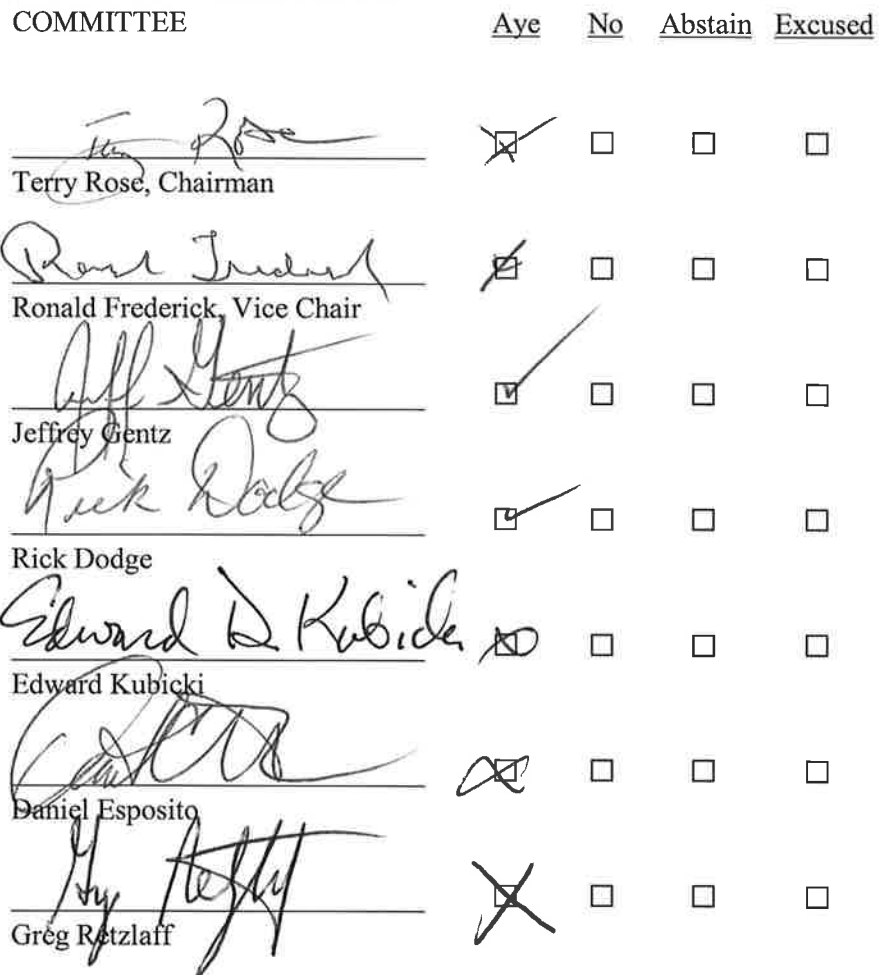 COMMITTEE Aye No Abstain Excused
Terry Rose
Terry Rose, Chairman
Ronald Frederick, Vice Chair
Jeff Gentz
Jeffrey Gentz
Rick Dodge
Rick Dodge
Edward D. Kubicki
Edward Kubicki
Daniel Esposito
Greg Retzlaff